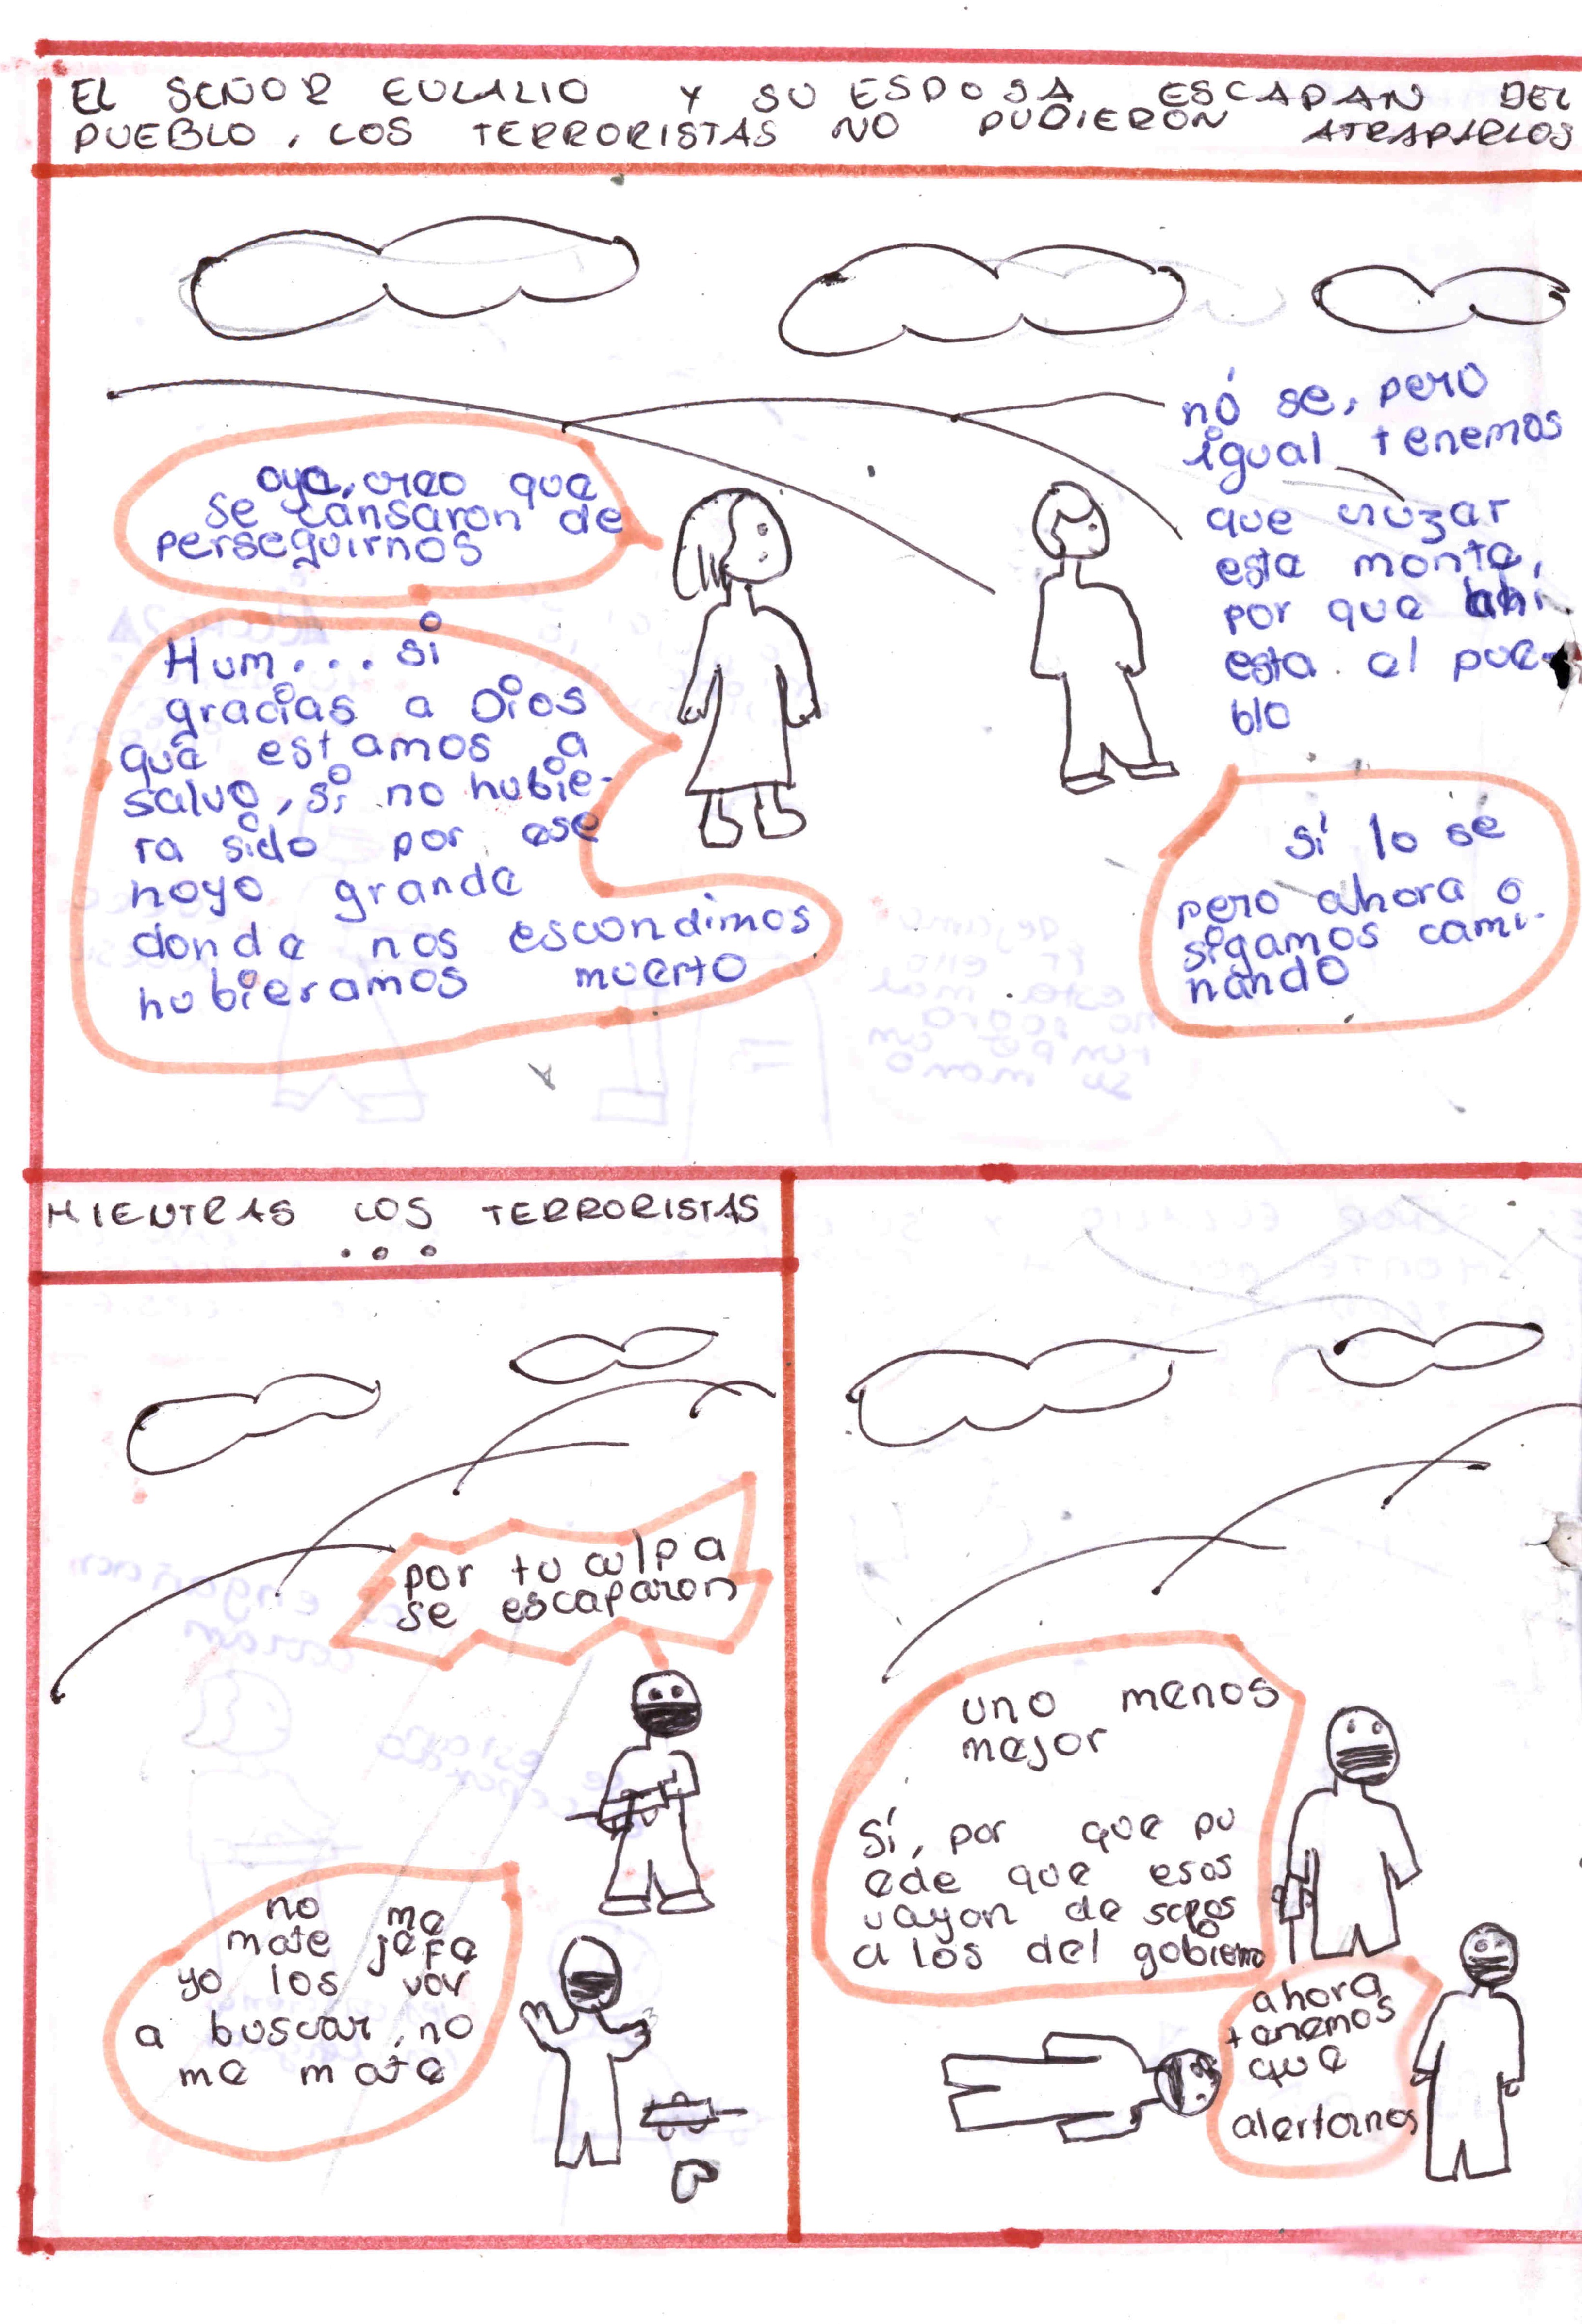 EL SEÑOR EULALIO Y SU ESPOSA ESCAPAN DEL
PUEBLO, LOS TERRORISTAS NO PUDIERON ATRAPARLOS
oye, creo que
se cansaron de
perseguirnos
nó se, pero
igual tenemos
que cruzar
este monte,
por que ahi
esta el pue-
blo
Hum... si
gracias a Dios
que estamos a
salvo, si no hubie-
ra sido por ese
hoyo grande
donde nos escondimos
hubieramos muerto
Sí lo sé
pero ahora
sigamos cami-
nando
MIENTRAS LOS TERRORISTAS
...
por tu culpa
se escaparon
no me
mate jefe
yo los voy
a buscar, no
me mate
uno menos
mejor
Sí, por que pu
ede que esos
vayan de sapos
a los del gobierno
ahora
tenemos
que
alertarnos